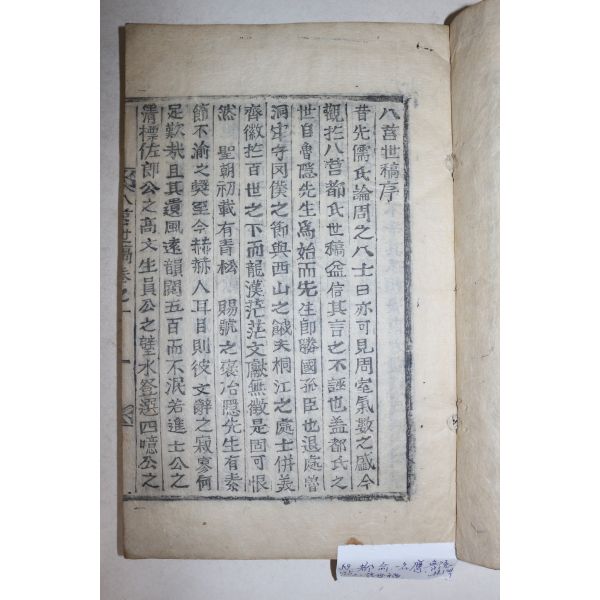 八莒世稿序
昔先儒氏論周之八士曰亦可見周室氣數之盛今
觀於八莒都氏世稿益信其言之不誣也盖都氏之
世自魯隱先生爲始而先生卽勝國孤臣也退處管
洞牢守罔僕之節與西山之餓夫桐江之處士倂美
齊徽於百世之下而龍漢茫茫文獻無徵是固可恨
然 聖朝初載有靑松 賜號之褒冶隱先生有秉
節不渝之奬至今赫赫人耳目則彼文辭之寂寥何
足歎哉且其遺風遠韻閱五百而不泯若進士公之
淸標佐郞公之高文生員公之璧水登選四噫公之
八莒世稿卷之一